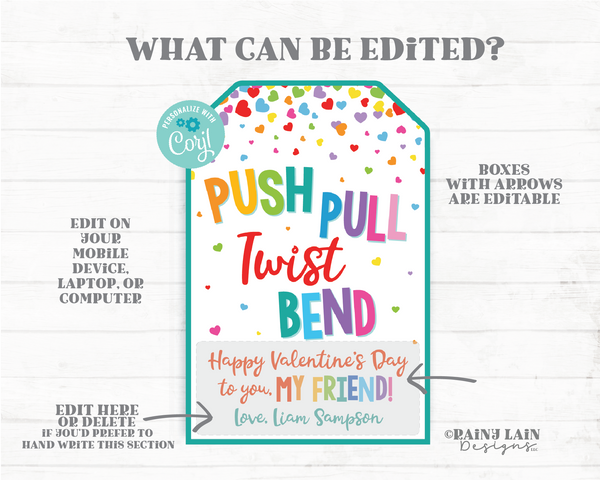 WHAT CAN BE EDITED?
PERSONALIZE WITH
Corjl
PUSH
PULL
Twist
BEND
Happy Valentine's Day
to you, MY FRIEND!
Love, Liam Sampson
BOXES
WITH ARROWS
ARE EDITABLE
EDIT ON
YOUR
MOBILE
DEVICE,
LAPTOP, OR
COMPUTER
EDIT HERE
OR DELETE
IF YOU'D PREFER TO
HAND WRITE THIS SECTION
©RAINY LAIN
Designs LLC